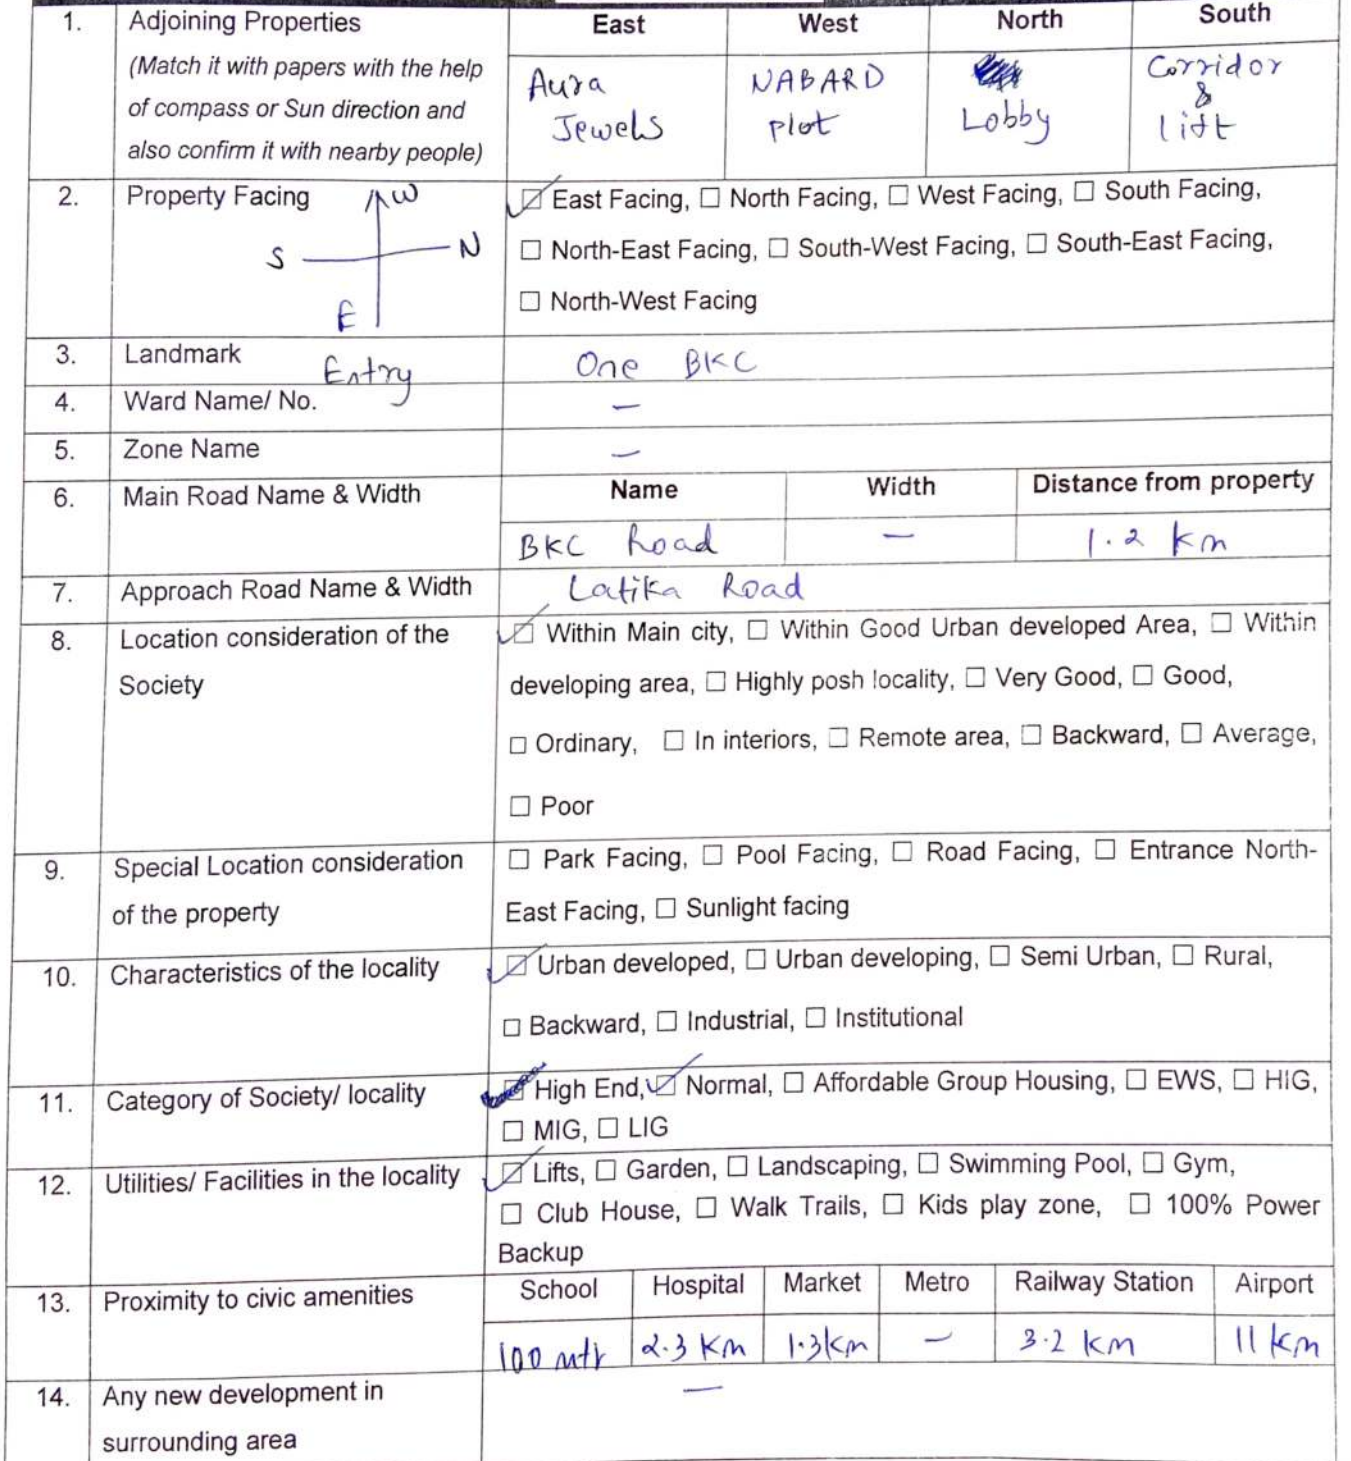 1. Adjoining Properties East West North South
(Match it with papers with the help
of compass or Sun direction and
also confirm it with nearby people)
Aura Jewels NABARD Plot Lobby Corridor & lift
2. Property Facing W S N E
☑ East Facing, ☐ North Facing, ☐ West Facing, ☐ South Facing,
☐ North-East Facing, ☐ South-West Facing, ☐ South-East Facing,
☐ North-West Facing
3. Landmark Entry One BKC
4. Ward Name/ No. –
5. Zone Name –
6. Main Road Name & Width Name Width Distance from property
BKC Road – 1.2 km
7. Approach Road Name & Width Latika Road
8. Location consideration of the
Society
☑ Within Main city, ☐ Within Good Urban developed Area, ☐ Within
developing area, ☐ Highly posh locality, ☐ Very Good, ☐ Good,
☐ Ordinary, ☐ In interiors, ☐ Remote area, ☐ Backward, ☐ Average,
☐ Poor
9. Special Location consideration
of the property
☐ Park Facing, ☐ Pool Facing, ☐ Road Facing, ☐ Entrance North-
East Facing, ☐ Sunlight facing
10. Characteristics of the locality
☑ Urban developed, ☐ Urban developing, ☐ Semi Urban, ☐ Rural,
☐ Backward, ☐ Industrial, ☐ Institutional
11. Category of Society/ locality
High End, ☑ Normal, ☐ Affordable Group Housing, ☐ EWS, ☐ HIG,
☐ MIG, ☐ LIG
12. Utilities/ Facilities in the locality
☑ Lifts, ☐ Garden, ☐ Landscaping, ☐ Swimming Pool, ☐ Gym,
☐ Club House, ☐ Walk Trails, ☐ Kids play zone, ☐ 100% Power
Backup
13. Proximity to civic amenities School Hospital Market Metro Railway Station Airport
100 mtr 2.3 Km 1.3km – 3.2 km 11 km
14. Any new development in
surrounding area
–